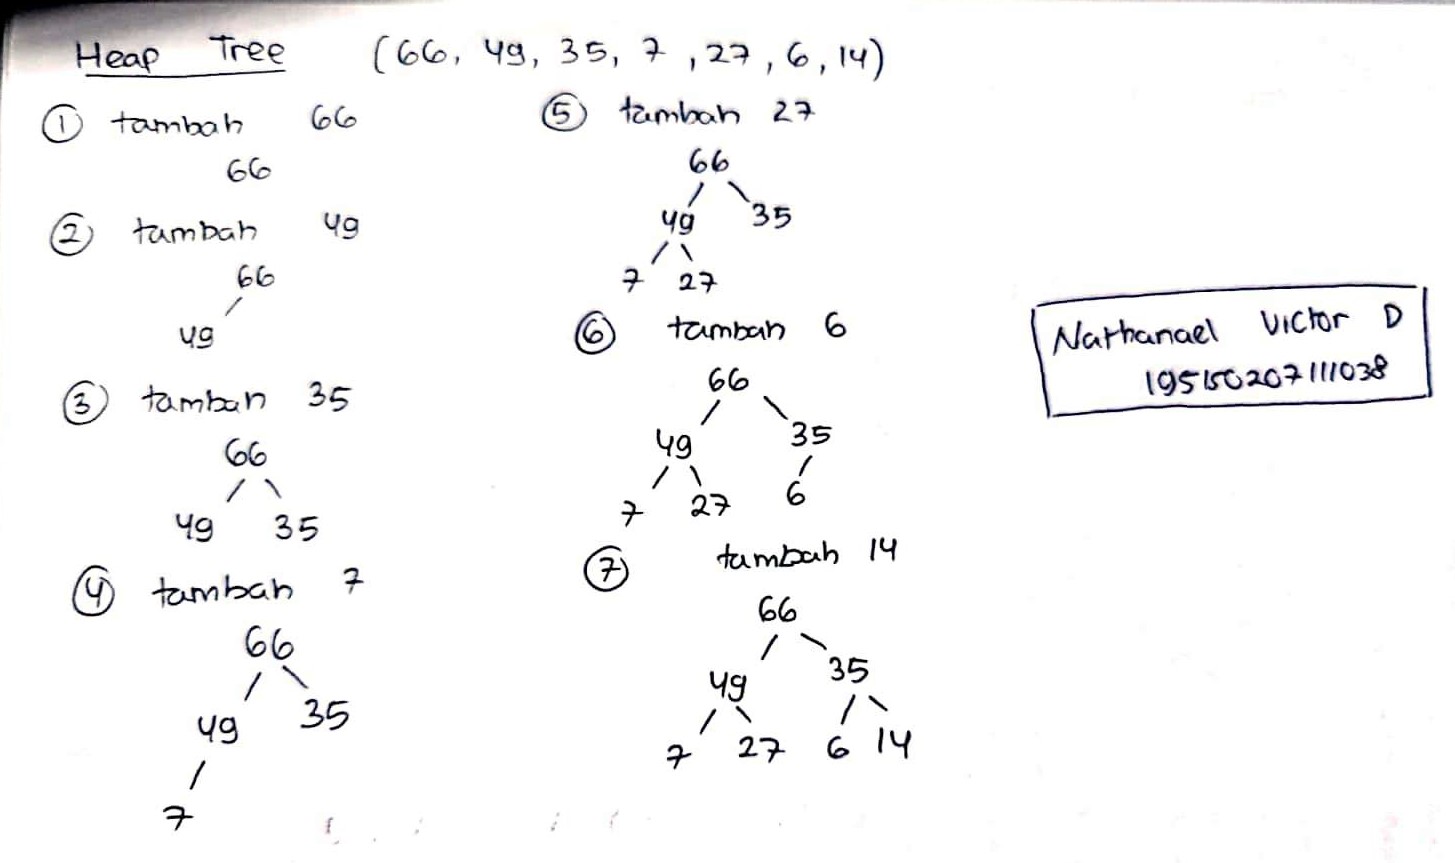 Heap Tree (66, 49, 35, 7, 27, 6, 14)
① tambah 66
66
② tambah 49
66
49
③ tambah 35
66
49 35
④ tambah 7
66
49 35
7
⑤ tambah 27
66
49 35
7 27
⑥ tambah 6
66
49 35
7 27 6
⑦ tambah 14
66
49 35
7 27 6 14
Nathanael Victor D
195150207111038